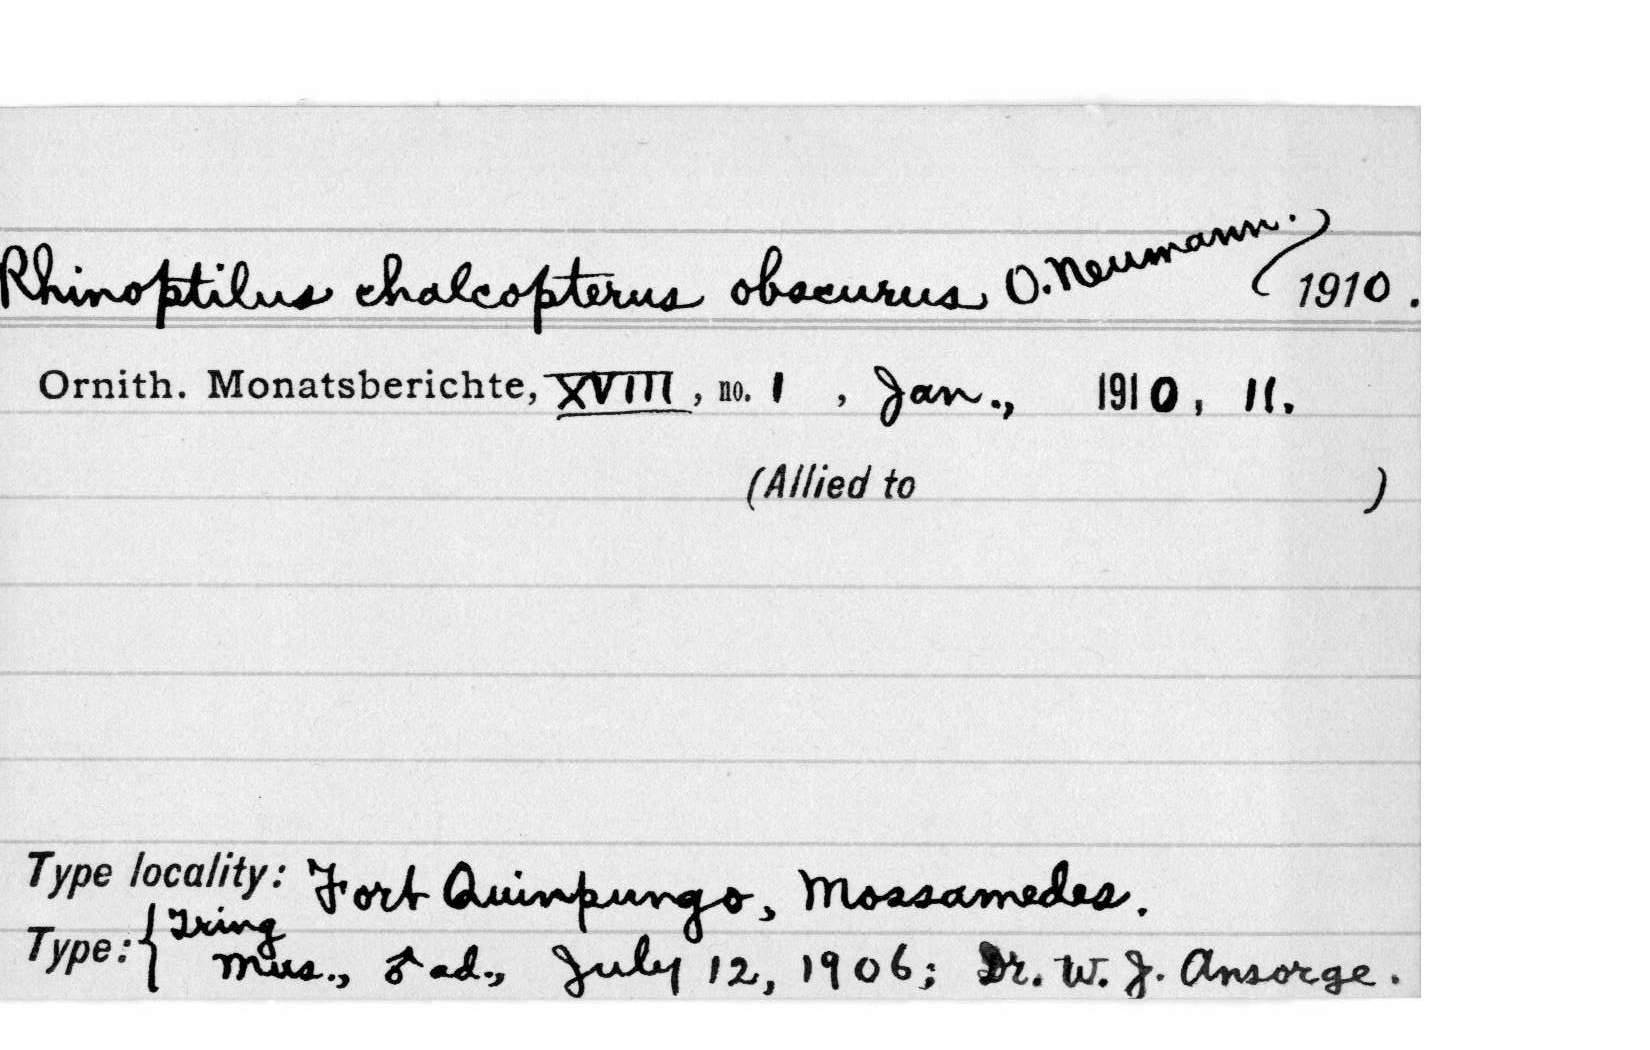 Rhinoptilus chalcopterus obscurus O. Neumann. (1910.
Ornith. Monatsberichte, XVIII, no. 1 , Jan., 1910, 11.
(Allied to )
Type locality: Fort Quinpungo, Mossamedes.
Type: { Tring
Mus., ♂ ad., July 12, 1906; Dr. W. J. Ansorge.